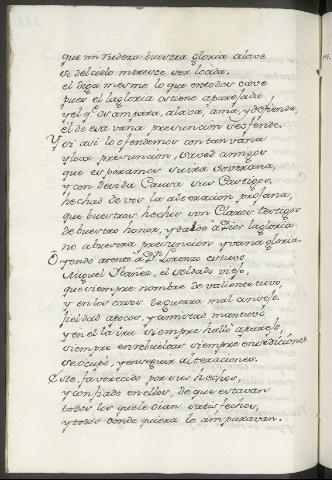 que mi rudeza buestra gloria alave
si del cielo merece ser loada.
el diga mesmo lo que en todos cave
pues el la gloria os tiene aparejada
y el q.e os ampara, alava, ama, y defiende,
él de esa vana presuncion se ofende.
Y si asi lo ofendemos con tan vana
y loca presuncion, saved amigos
que esperamos su ira soverana,
y con devida causa sus castigos.
hechad de vos la alteracion profana,
que buestros hechos son claros testigos
de buestro honor, y dad a Dios la gloria
no a buestra presuncion y vana gloria.
Oyendo atento á D.n Lorenzo estuvo
Miguel Ibañez, el soldado viejo,
que siempre nombre de valiente tuvo,
y en los casos de guerra mal consejo.
fieldad á pocos, y amistad mantuvo
y en el la ira siempre halló aparejo,
siempre en rebueltas siempre en sediciones
se ocupó, y en seguir alteraciones.
Este favorecido por sus hechos,
y confiado en ellos, de que estavan
todos los que le oian satisfechos,
y todos donde quiera lo amparavan.